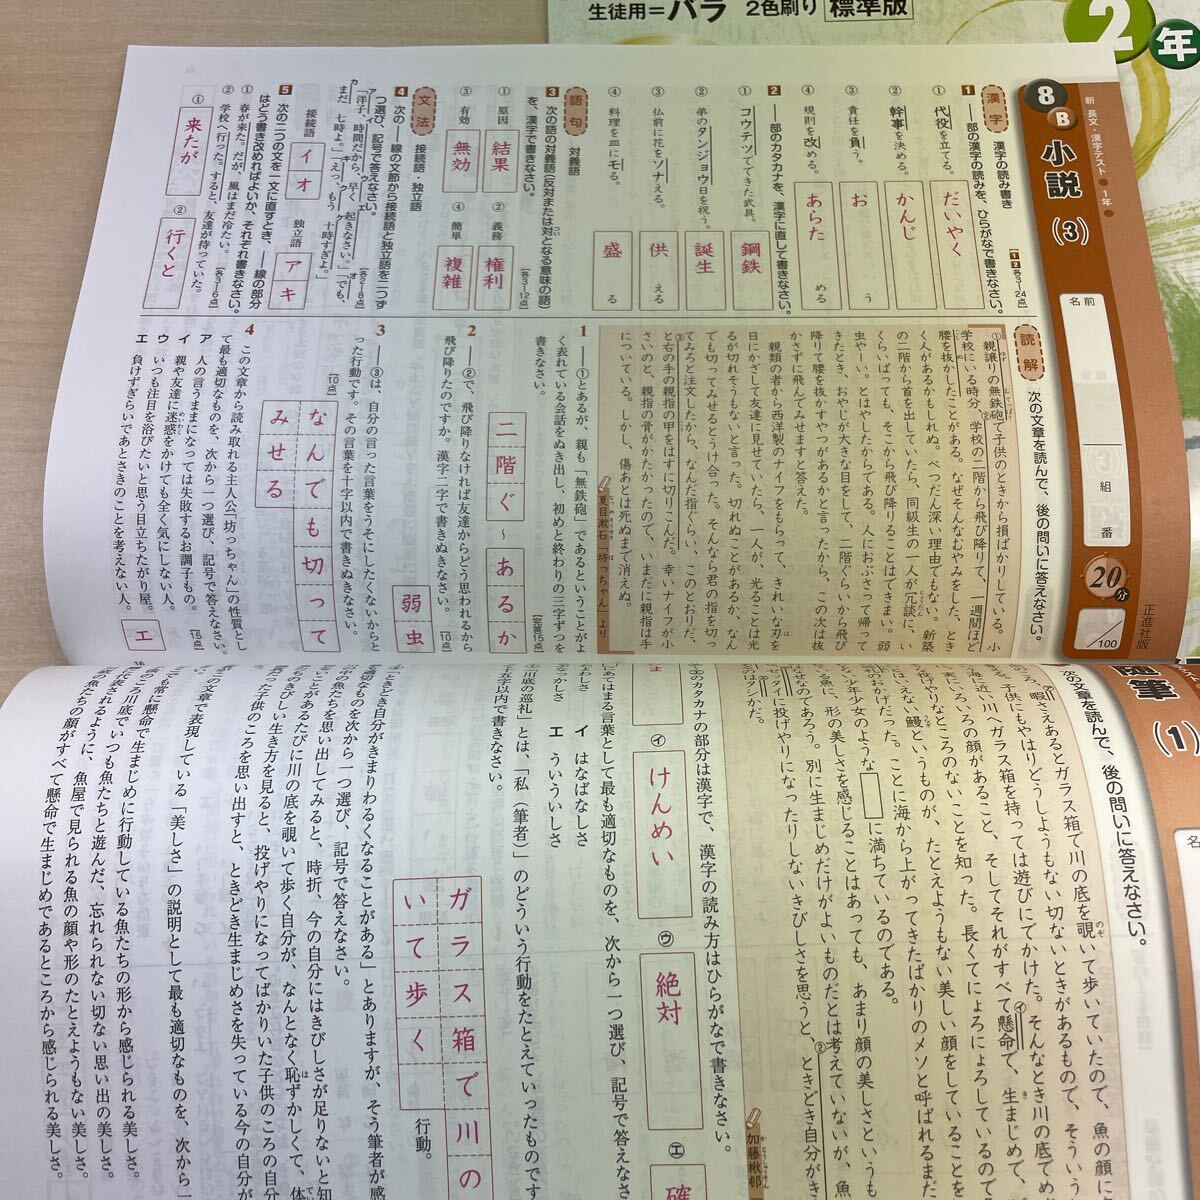 生徒用＝バラ 2色刷り 標準版
2年
8B 小説(3)
新 長文・漢字テスト・1年
名前
組
番
20分
/100
正進社版
漢字 漢字の読み書き
1 ──部の漢字の読みを、ひらがなで書きなさい。
[12各3―24点]
① 代役を立てる。 だいやく
② 幹事を決める。 かんじ
③ 責任を負う。 お う
④ 規則を改める。 あらた める
2 ──部のカタカナを、漢字に直して書きなさい。
① コウテツでできた武具。 鋼鉄
② 弟のタンジョウ日を祝う。 誕生
③ 仏前に花をソナえる。 供 える
④ 料理を皿にモる。 盛 る
語句 対義語
3 次の語の対義語(反対または対となる意味の語)を、漢字で書きなさい。
[各3―12点]
① 原因 結果
② 義務 権利
③ 有効 無効
④ 簡単 複雑
文法 接続語・独立語
4 次の──線の文節から接続語と独立語を二つずつ選び、記号で答えなさい。
[各2―8点]
「洋子、時間だから、早く起きなさい。」「でも、
まだ七時よ。」「えっ、もう十時すぎよ。」
接続語 イ オ
独立語 ア キ
5 次の二つの文を一文に直すとき、──線の部分はどう書き改めればよいか、それぞれ書きなさい。
[各3―6点]
① 春が来た。だが、風はまだ冷たい。
② 学校へ行った。すると、友達が待っていた。
① 来たが
② 行くと
読解 次の文章を読んで、後の問いに答えなさい。
①親譲りの無鉄砲で子供のときから損ばかりしている。小
学校にいる時分、②学校の二階から飛び降りて、一週間ほど
腰を抜かしたことがある。なぜそんなむやみをした、とき
く人があるかもしれぬ。べつだん深い理由でもない。新築
の二階から首を出していたら、同級生の一人が冗談に、い
くらいばっても、そこから飛び降りることはできまい。弱
虫やーい。とはやしたからである。人におぶさって帰って
きたとき、おやじが大きな目をして、二階ぐらいから飛び
降りて腰を抜かすやつがあるかと言ったから、この次は抜
かさずに飛んでみせますと答えた。
親類の者から西洋製のナイフをもらって、きれいな刃を
日にかざして友達に見せていたら、一人が、光ることは光
るが切れそうもないと言った。切れぬことがあるか、なん
でも切ってみせるとうけ合った。そんなら君の指を切っ
てみろと注文したから、なんだ指ぐらい、このとおりだ、
と右の手の親指の甲をはすに切りこんだ。幸いナイフが小
さいのと、親指の骨がかたかったので、いまだに親指は手
についている。しかし、傷あとは死ぬまで消えぬ。
夏目漱石「坊っちゃん」より
1 ──①とあるが、親も「無鉄砲」であるということがよく表れている会話をぬき出し、初めと終わりの三字ずつを書きなさい。
[完答15点]
二階ぐ～あるか
2 ──②で、飛び降りなければ友達からどう思われるから飛び降りたのですか。漢字二字で書きぬきなさい。
[10点]
弱虫
3 ──③は、自分の言った言葉をうそにしたくないからとった行動です。その言葉を十字以内で書きぬきなさい。
[10点]
なんでも切って
みせる
4 この文章から読み取れる主人公「坊っちゃん」の性質として最も適切なものを、次から一つ選び、記号で答えなさい。
[15点]
ア 人の言うままになっては失敗するお調子もの。
イ 親や友達に迷惑をかけても全く気にしない人。
ウ いつも注目を浴びたいと思う目立ちたがり屋。
エ 負けずぎらいであとさきのことを考えない人。
エ
随筆(1)
次の文章を読んで、後の問いに答えなさい。
暇さえあるとガラス箱で川の底を覗いて歩いていたので、魚の顔に
加藤楸邨
㋑ けんめい
㋒ 絶対
㋓ 確
のカタカナの部分は漢字で、漢字の読み方はひらがなで書きなさい。
にあてはまる言葉として最も適切なものを、次から一つ選び、記号で答えなさ
イ はなばなしさ
エ ういういしさ
「川底の巡礼」とは、「私(筆者)」のどういう行動をたとえていったものです
五字以内で書きなさい。
ガラス箱で川の
いて歩く
行動。
「ときどき自分がきまりわるくなることがある」とありますが、そう筆者が感
切なものを次から一つ選び、記号で答えなさい。
の魚たちを思い出してみると、時折、今の自分にはきびしさが足りないと知
ことがあるたびに川の底を覗いて歩く自分が、なんとなく恥ずかしくて、体
ちのきびしい生き方を見ると、投げやりになってばかりいた子供のころの自分
た子供のころを思い出すと、ときどき生まじめさを失っている今の自分が
の文章で表現している「美しさ」の説明として最も適切なものを、次から一
でも常に懸命で生まじめに行動している魚たちの形から感じられる美しさ。
ころ川底でいつも魚たちと遊んだ、忘れられない切ない思い出の美しさ。
に表されるように、魚屋で見られる魚の顔や形のたとえようもない美しさ。
の魚たちの顔がすべて懸命で生まじめであるところから感じられる美しさ。